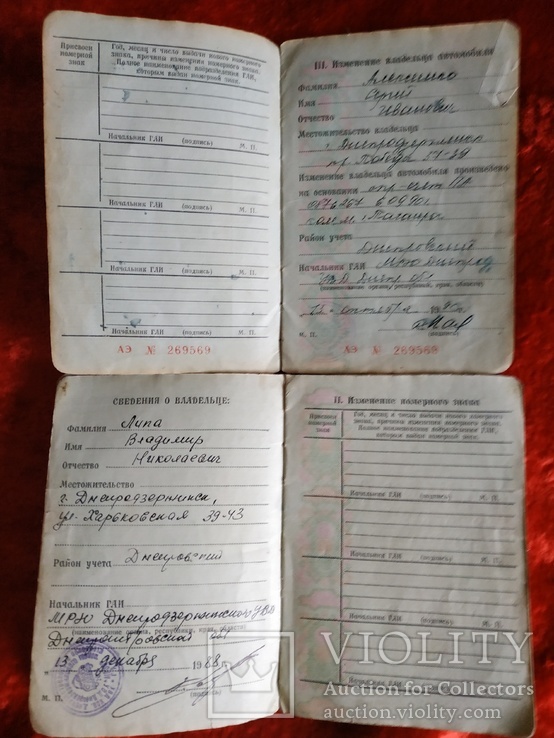 Присвоен номерной знак
Год, месяц и число выдачи нового номерного
знака, причины изменения номерного знака.
Полное наименование подразделения ГАИ,
которым выдан номерной знак.
Начальник ГАИ (подпись) М. П.
Начальник ГАИ (подпись) М. П.
Начальник ГАИ (подпись) М. П.
Начальник ГАИ (подпись) М. П.
АЭ № 269569
III. Изменение владельца автомобиля
Фамилия
Имя
Отчество Иванович
Местожительство владельца
г. Днепродзержинск
пр. Победа
Изменение владельца автомобиля произведено
на основании
Район учета Днепровский
Начальник ГАИ МРЭО
(наименование органа, республики, края, области)
М. П. (подпись)
АЭ № 269569
СВЕДЕНИЯ О ВЛАДЕЛЬЦЕ:
Фамилия Липа
Имя Владимир
Отчество Николаевич
Местожительство
г. Днепродзержинск,
ул. Харьковская 39-43
Район учета Днепровский
Начальник ГАИ
МРЭО Днепродзержинского УВД
Днепропетровской обл
(наименование органа, республики, края, области)
13 декабря 1988 г.
М. П. (подпись)
II. Изменение номерного знака
Присвоен номерной знак
Год, месяц и число выдачи нового номерного
знака, причины изменения номерного знака.
Полное наименование подразделения ГАИ,
которым выдан номерной знак.
Начальник ГАИ (подпись) М. П.
Начальник ГАИ (подпись) М. П.
Начальник ГАИ (подпись) М. П.
VIOLITY
Auction for Collectors
auction.violity.com